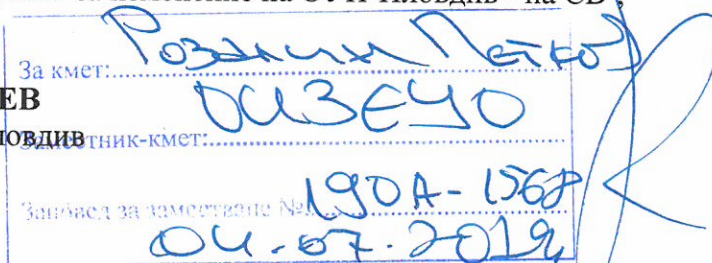 за изменение на ОУП-Пловдив – на CD ;
За кмет: Розалин Петков
ЕВ
ПИЗЕУО
ловдив
Заместник-кмет:
Заповед за заместване № 19ОА-1568
04.07.2019г.